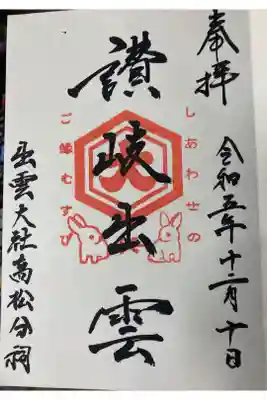 奉拝
令和五年十二月十日
讃岐出雲
しあわせの
ご縁むすび
出雲大社高松分祠